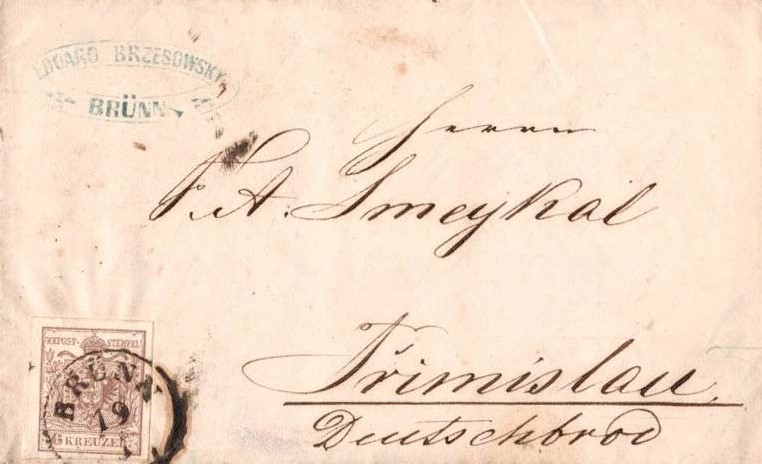 EDUARD BRZESOWSKY
BRÜNN
Herrn
A. Smeykal
KKPOST-STEMPEL
BRÜNN
19
6 KREUZER
Přimislau
Deutschbrod